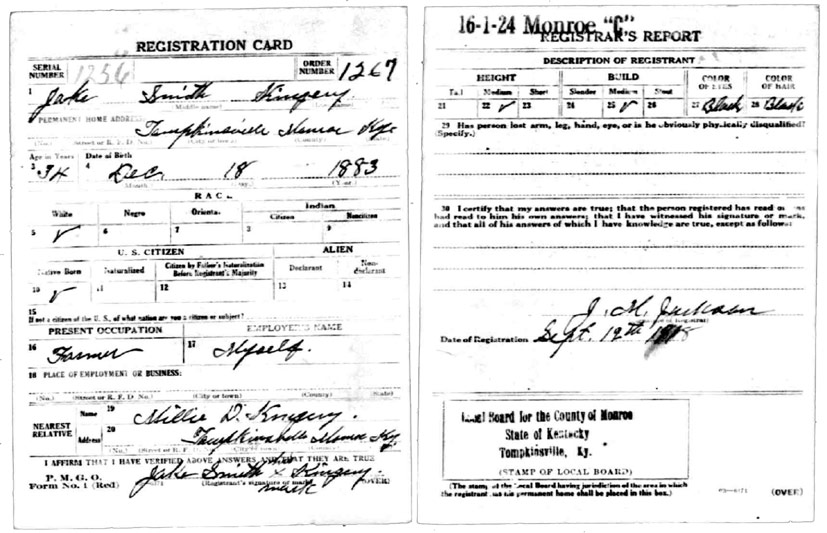 REGISTRATION CARD
SERIAL NUMBER 1256
ORDER NUMBER 1267
1 Jake Smith Kingery
(Middle name)
2 PERMANENT HOME ADDRESS
Tompkinsville Monroe Ky
(No.) (Street or R. F. D. No.) (City or town) (County) (State)
Age in Years Date of Birth
3 34 4 Dec. 18 1883
(Month) (Day) (Year)
RACE
White Negro Oriental Indian
Citizen Noncitizen
5 ✓ 6 7 8 9
U. S. CITIZEN ALIEN
Native Born Naturalized Citizen by Father's Naturalization Before Registrant's Majority Declarant Non-declarant
10 ✓ 11 12 13 14
15
If not a citizen of the U. S., of what nation are you a citizen or subject?
PRESENT OCCUPATION EMPLOYER'S NAME
16 Farmer 17 Myself.
18 PLACE OF EMPLOYMENT OR BUSINESS:
(No.) (Street or R. F. D. No.) (City or town) (County) (State)
NEAREST RELATIVE
Name 19 Millie D. Kingery.
Address 20 Tompkinsville Monroe Ky.
(No.) (Street or R. F. D. No.) (City or town)
I AFFIRM THAT I HAVE VERIFIED ABOVE ANSWERS AND THAT THEY ARE TRUE
P. M. G. O.
Form No. 1 (Red)
Jake Smith x Kingery.
mark
(Registrant's signature or mark) (OVER)
16-1-24 Monroe "C"
REGISTRAR'S REPORT
DESCRIPTION OF REGISTRANT
HEIGHT BUILD COLOR OF EYES COLOR OF HAIR
Tall Medium Short Slender Medium Stout
21 22 ✓ 23 24 25 ✓ 26 27 Black 28 Black
29 Has person lost arm, leg, hand, eye, or is he obviously physically disqualified?
(Specify.)
30 I certify that my answers are true; that the person registered has read or has
had read to him his own answers; that I have witnessed his signature or mark,
and that all of his answers of which I have knowledge are true, except as follows:
J. M. Jackson
(Signature of Registrar)
Date of Registration Sept. 12th 1918
Local Board for the County of Monroe
State of Kentucky
Tompkinsville, Ky.
(STAMP OF LOCAL BOARD)
(The stamp of the Local Board having jurisdiction of the area in which
the registrant has his permanent home shall be placed in this box.)
(OVER)